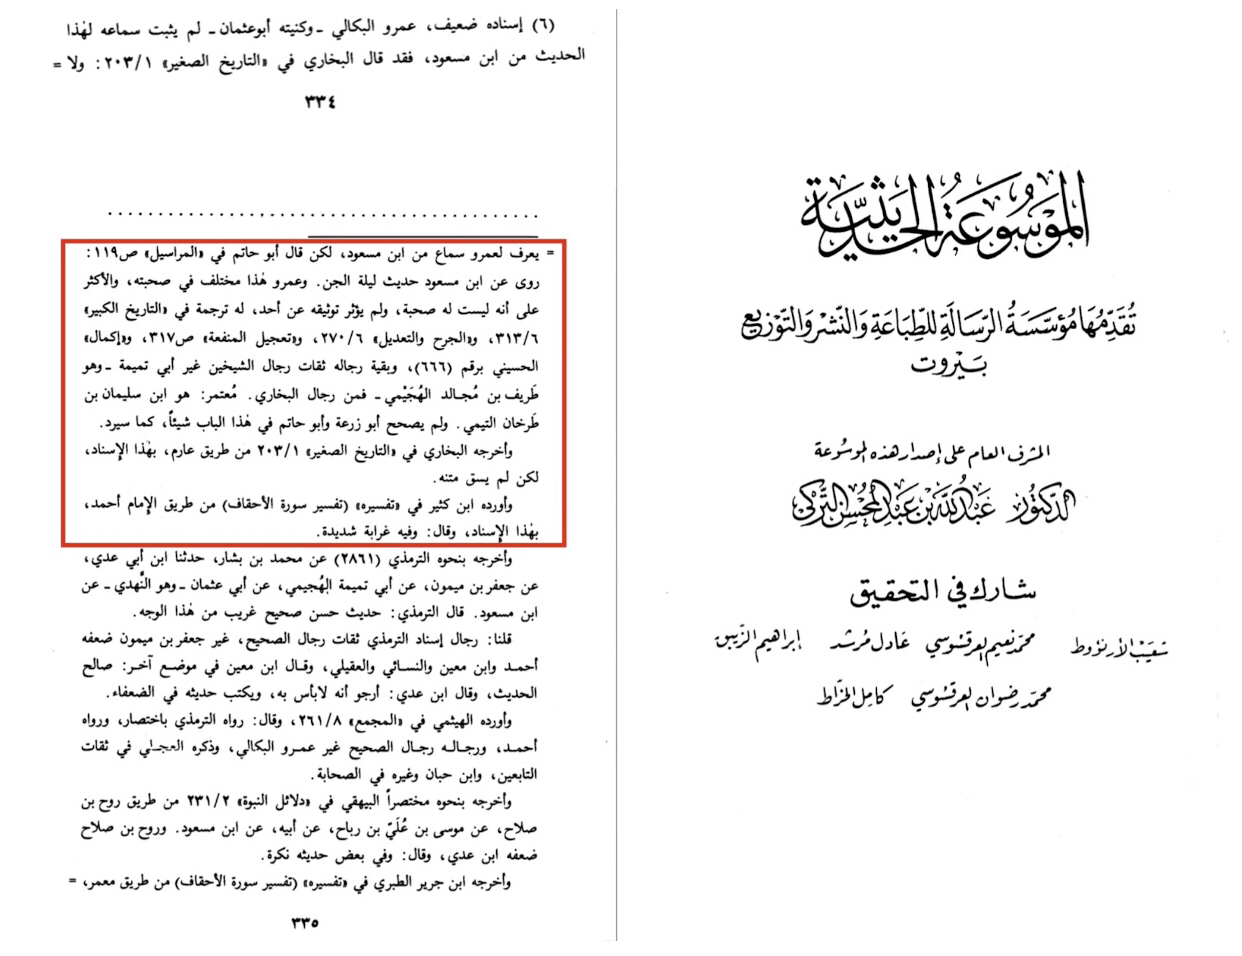 (٦) إسناده ضعيف، عمرو البكالي ـ وكنيته أبوعثمان ـ لم يثبت سماعه لهٰذا
الحديث من ابن مسعود، فقد قال البخاري في «التاريخ الصغير» ٢٠٣/١: ولا =
٣٣٤
= يعرف لعمرو سماع من ابن مسعود، لكن قال أبو حاتم في «المراسيل» ص١١٩:
روى عن ابن مسعود حديث ليلة الجن. وعمرو هٰذا مختلف في صحبته، والأكثر
على أنه ليست له صحبة، ولم يؤثر توثيقه عن أحد، له ترجمة في «التاريخ الكبير»
٣١٣/٦، و«الجرح والتعديل» ٢٧٠/٦، و«تعجيل المنفعة» ص٣١٧، و«إكمال»
الحسيني برقم (٦٦٦)، وبقية رجاله ثقات رجال الشيخين غير أبي تميمة ـ وهو
طَريف بن مُجالد الهُجَيْمي ـ فمن رجال البخاري. مُعتمر: هو ابن سليمان بن
طَرخان التيمي. ولم يصحح أبو زرعة وأبو حاتم في هٰذا الباب شيئاً، كما سيرد.
وأخرجه البخاري في «التاريخ الصغير» ٢٠٣/١ من طريق عارم، بهٰذا الإسناد،
لكن لم يسق متنه.
وأورده ابن كثير في «تفسيره» (تفسير سورة الأحقاف) من طريق الإمام أحمد،
بهٰذا الإسناد، وقال: وفيه غرابة شديدة.
وأخرجه بنحوه الترمذي (٢٨٦١) عن محمد بن بشار، حدثنا ابن أبي عدي،
عن جعفر بن ميمون، عن أبي تميمة الهُجيمي، عن أبي عثمان ـ وهو النَّهدي ـ عن
ابن مسعود. قال الترمذي: حديث حسن صحيح غريب من هٰذا الوجه.
قلنا: رجال إسناد الترمذي ثقات رجال الصحيح، غير جعفر بن ميمون ضعفه
أحمد وابن معين والنسائي والعقيلي، وقال ابن معين في موضع آخر: صالح
الحديث، وقال ابن عدي: أرجو أنه لابأس به، ويكتب حديثه في الضعفاء.
وأورده الهيثمي في «المجمع» ٢٦١/٨، وقال: رواه الترمذي باختصار، ورواه
أحمد، ورجاله رجال الصحيح غير عمرو البكالي، وذكره العجلي في ثقات
التابعين، وابن حبان وغيره في الصحابة.
وأخرجه بنحوه مختصراً البيهقي في «دلائل النبوة» ٢٣١/٢ من طريق روح بن
صلاح، عن موسى بن عُلَيّ بن رباح، عن أبيه، عن ابن مسعود. وروح بن صلاح
ضعفه ابن عدي، وقال: وفي بعض حديثه نكرة.
وأخرجه ابن جرير الطبري في «تفسيره» (تفسير سورة الأحقاف) من طريق معمر، =
٣٣٥
المَوْسُوعَةُ الحَدِيثِيَّة
تُقَدِّمُهَا مُؤَسَّسَةُ الرِّسَالَةِ لِلطِّبَاعَةِ وَالنَّشْرِ وَالتَّوْزِيعِ
بَيْرُوت
المشرف العام على إصدار هذه الموسُوعة
الدّكتُور عَبْدُ اللهِ بْن عَبْدِ المُحْسِن التُّرْكِي
شارك في التحقيق
شعَيبْ الأرنؤوط محمّد نعيم العرقسُوسي عَادل مُرشد إبراهيم الزّيبق
محمّد رضوان العرقسُوسي كامِل الخرّاط